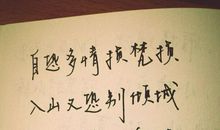 自恐多情损梵损
入山又恐别倾城